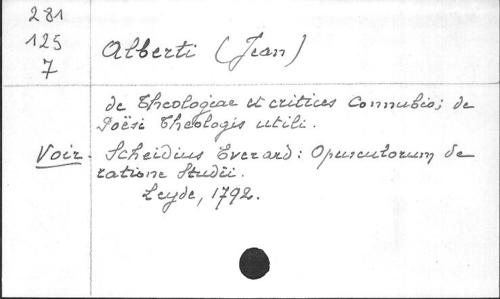 281
125
7
Alberti (Jean)
de Theologiae et critices Connubio; de
Poësi Theologis utili.
Voir. Scheidius Everard: Opusculorum de
ratione Studii.
Leyde, 1792.